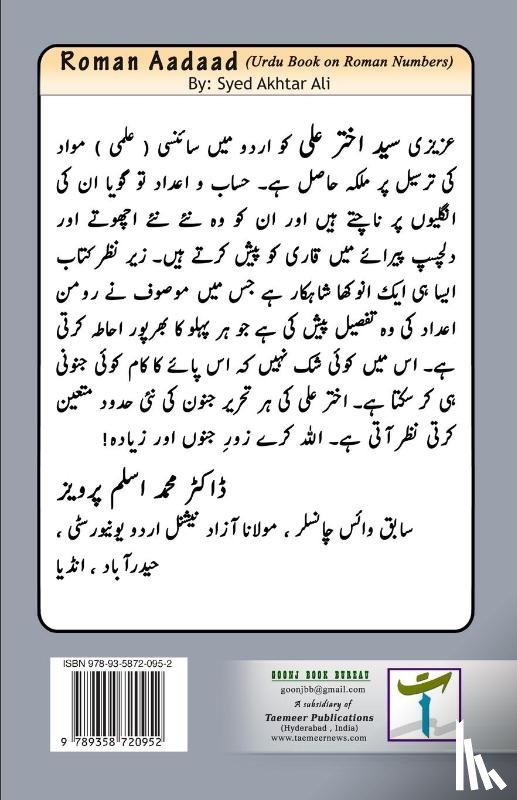 Roman Aadaad (Urdu Book on Roman Numbers)
By: Syed Akhtar Ali
عزیزی سید اختر علی کو اردو میں سائنسی ( علمی ) مواد
کی ترسیل پر ملکہ حاصل ہے۔ حساب و اعداد تو گویا ان کی
انگلیوں پر ناچتے ہیں اور ان کو وہ نئے نئے اچھوتے اور
دلچسپ پیرائے میں قاری کو پیش کرتے ہیں۔ زیر نظر کتاب
ایسا ہی ایک انوکھا شاہکار ہے جس میں موصوف نے رومن
اعداد کی وہ تفصیل پیش کی ہے جو ہر پہلو کا بھرپور احاطہ کرتی
ہے۔ اس میں کوئی شک نہیں کہ اس پائے کا کام کوئی جنونی
ہی کر سکتا ہے۔ اختر علی کی ہر تحریر جنون کی نئی حدود متعین
کرتی نظر آتی ہے۔ اللہ کرے زورِ جنوں اور زیادہ!
ڈاکٹر محمد اسلم پرویز
سابق وائس چانسلر ، مولانا آزاد نیشنل اردو یونیورسٹی ،
حیدرآباد ، انڈیا
ISBN 978-93-5872-095-2
9 789358 720952
GOONJ BOOK BUREAU
goonjbb@gmail.com
A subsidiary of
Taemeer Publications
(Hyderabad , India)
www.taemeernews.com